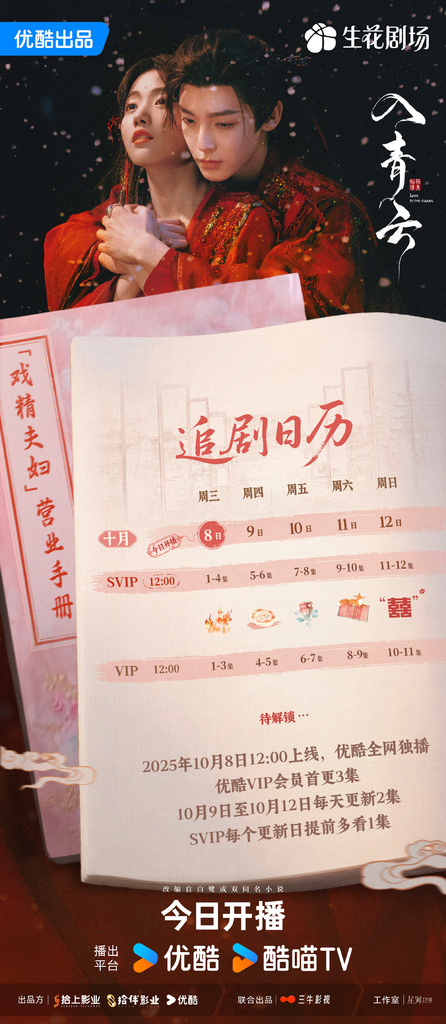 优酷出品
生花剧场
入青云
Love
IN THE CLOUDS
「戏精夫妇」营业手册
追剧日历
周三 周四 周五 周六 周日
十月 今日开播 8日 9日 10日 11日 12日
SVIP 12:00 1-4集 5-6集 7-8集 9-10集 11-12集
“囍”
VIP 12:00 1-3集 4-5集 6-7集 8-9集 10-11集
待解锁…
2025年10月8日12:00上线，优酷全网独播
优酷VIP会员首更3集
10月9日至10月12日每天更新2集
SVIP每个更新日提前多看1集
改编自白鹭成双同名小说
今日开播
播出平台 优酷 酷喵TV
出品方 拾上影业 拾伴影业 优酷 联合出品 三牛影视 工作室